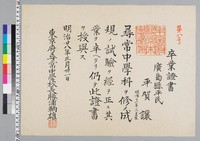 卒業證書
廣島縣平民
平賀讓
尋常中學科ヲ修メ成
規ノ試驗ヲ經テ正ニ其
業ヲ卒ヘタリ仍テ此證書
ヲ授與ス
明治廿八年三月廿一日
東京府尋常中學校長勝浦鞆雄